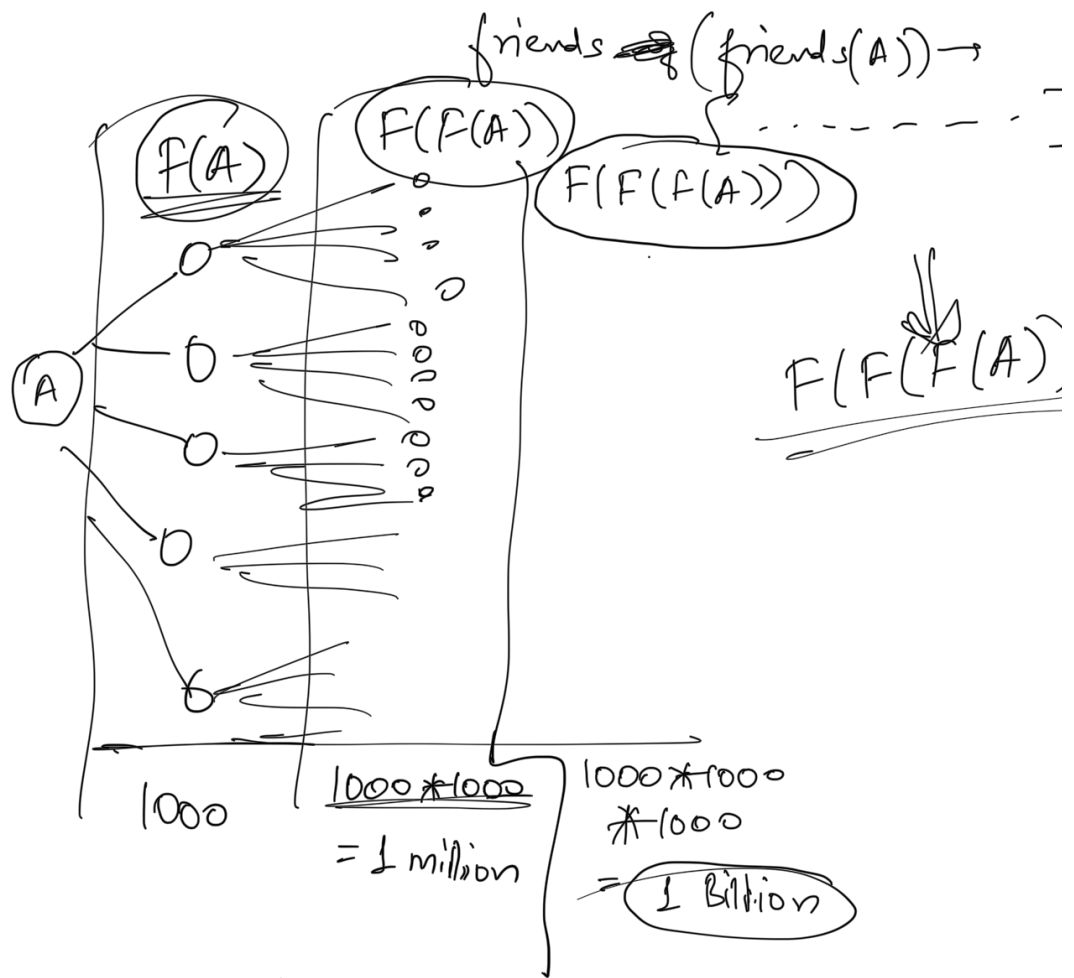 friends (friends(A)) →
F(A)
F(F(A))
F(F(F(A)))
A
F(F(F(A)
1000
1000 * 1000
= 1 million
1000 * 1000
* 1000
= 1 Billion